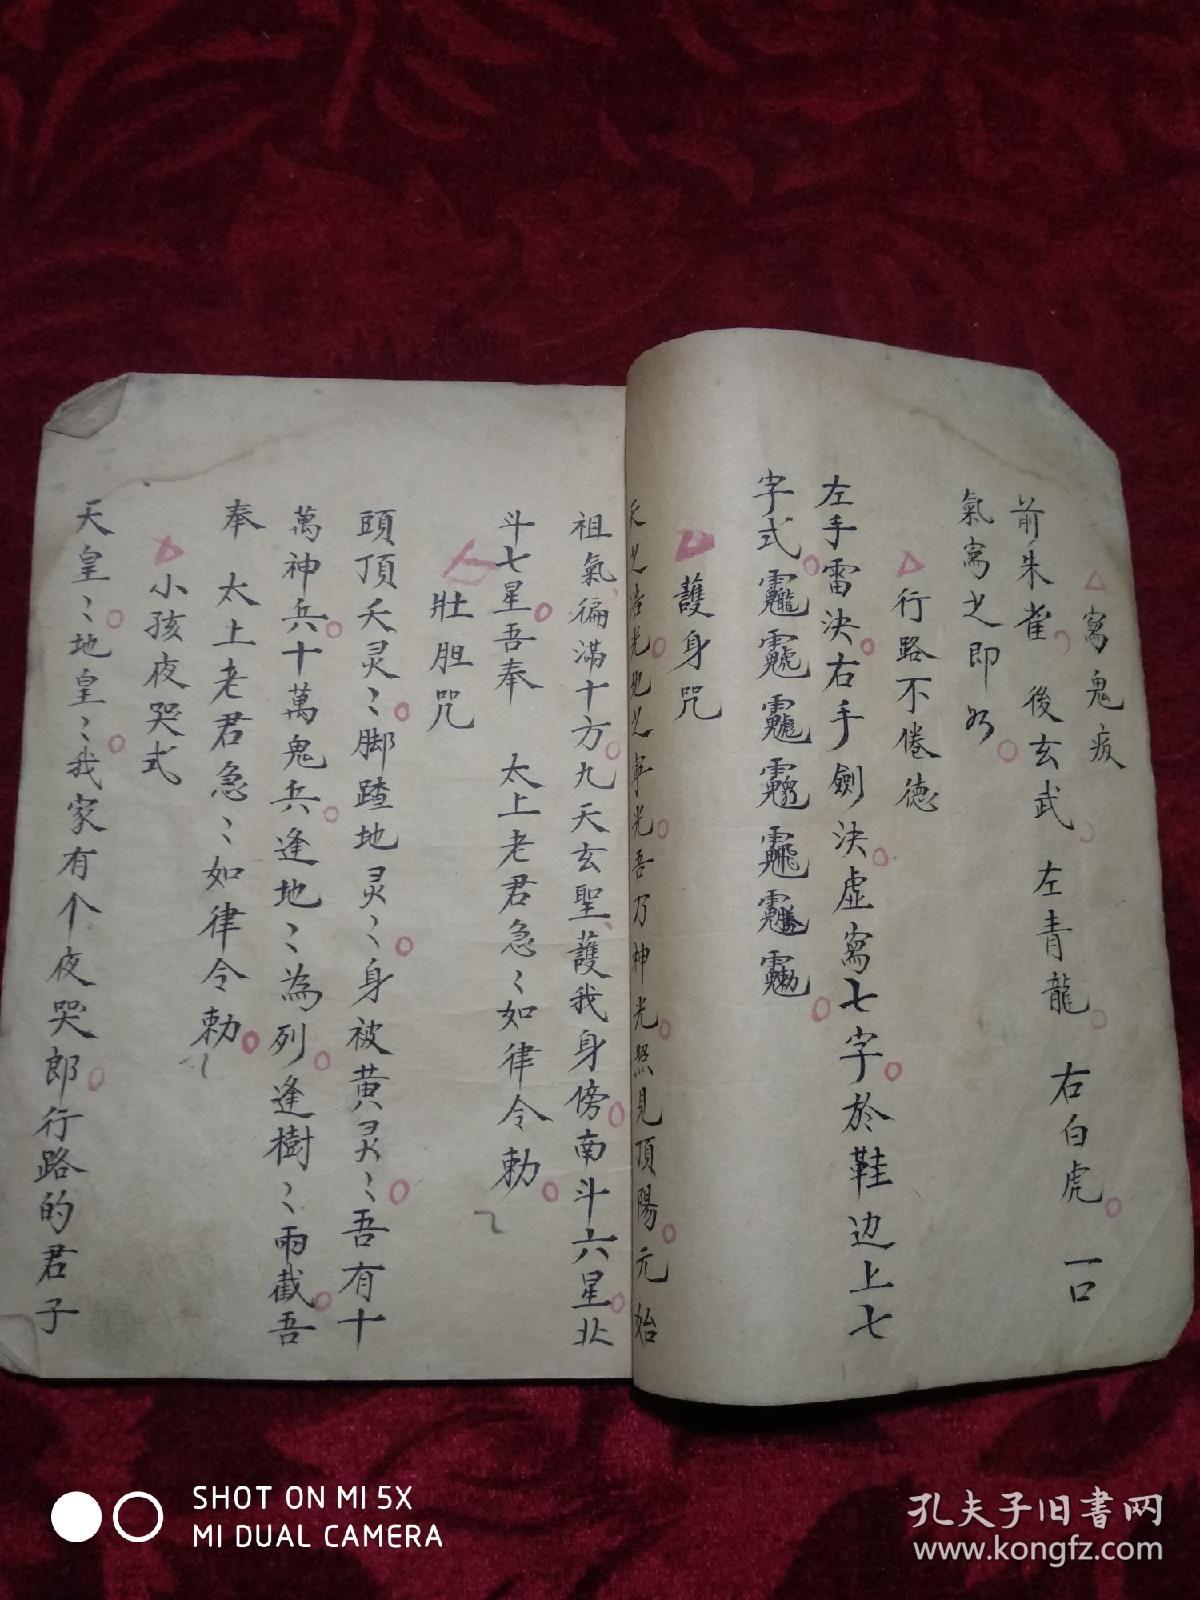 寫鬼疲
前朱雀 後玄武 左青龍 右白虎 一口
氣寫之即好
行路不倦德
左手雷決右手劍決虛寫七字於鞋边上七
字式
護身咒
天之浩光地之宇光吾乃神光照見頂陽元始
祖氣徧滿十方九天玄聖護我身傍南斗六星北
斗七星吾奉 太上老君急〻如律令勅
壯胆咒
頭頂天灵〻脚踏地灵〻身被黄灵〻吾有十
萬神兵十萬鬼兵逢地〻為列逢樹〻兩截吾
奉 太上老君急〻如律令勅
小孩夜哭式
天皇〻地皇〻我家有个夜哭郎行路的君子
SHOT ON MI 5X
MI DUAL CAMERA
孔夫子旧书网
www.kongfz.com